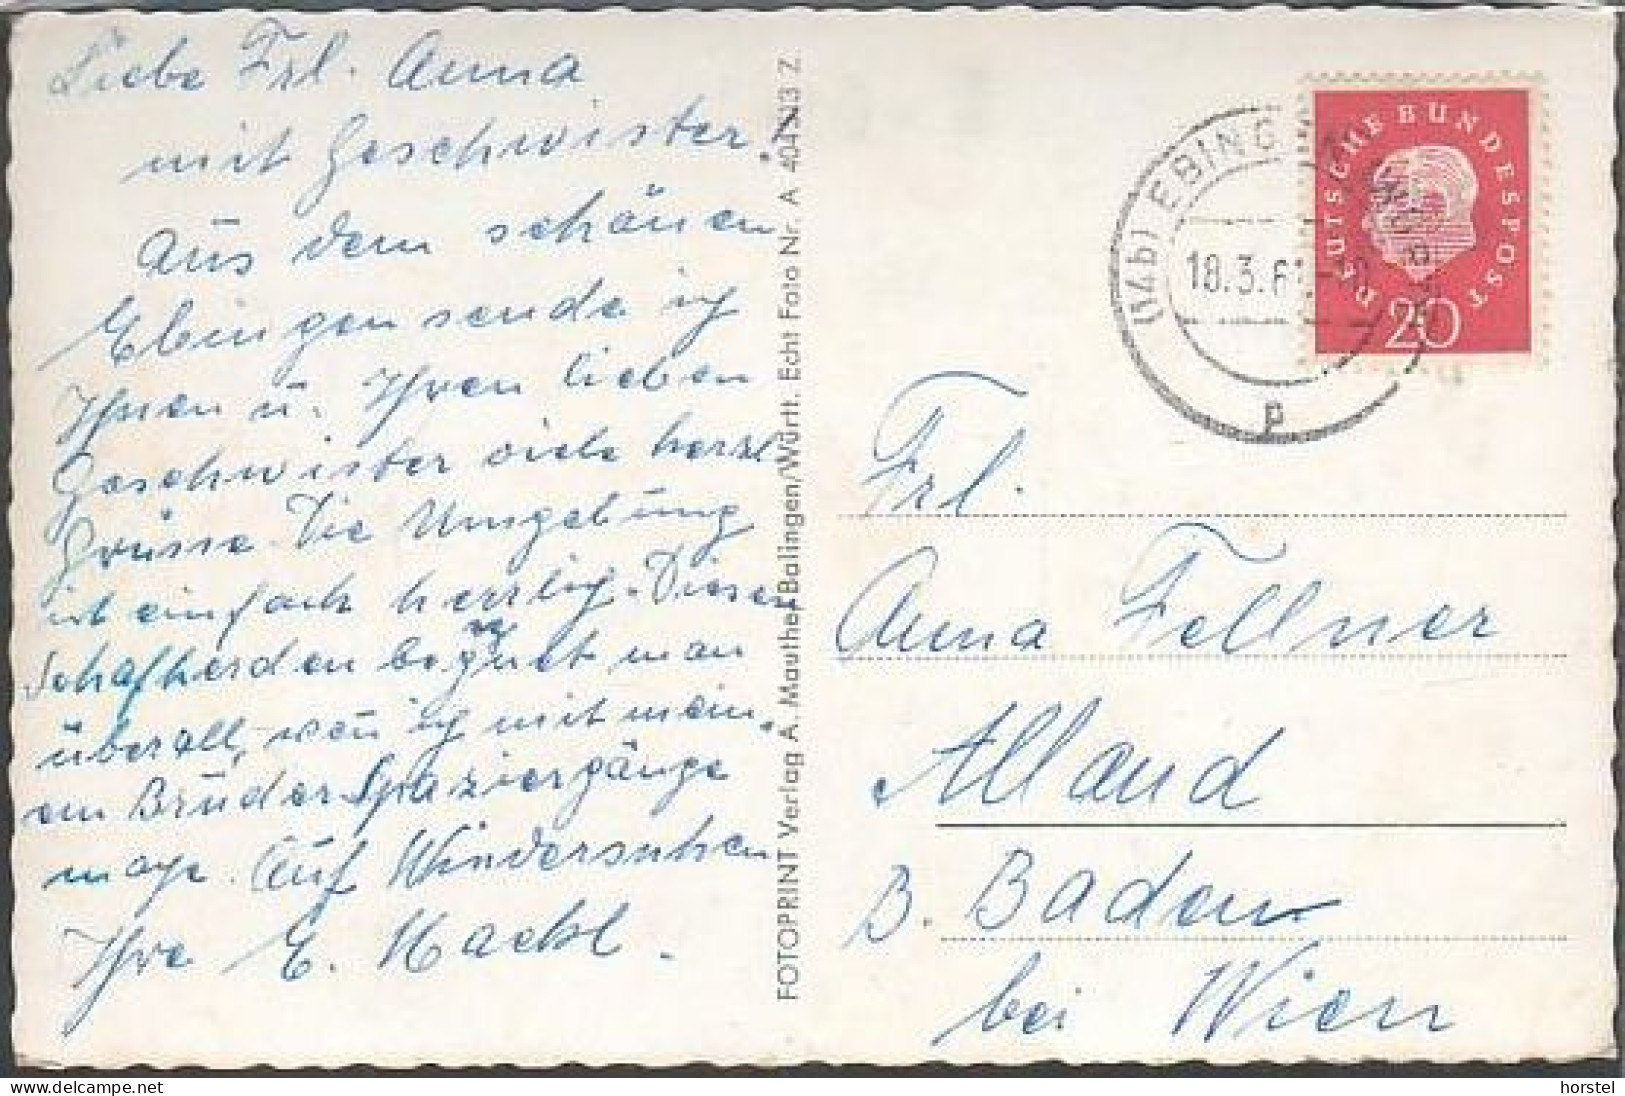 Liebe Frl. Anna
mit Geschwister.
Aus dem schönen
Ebingen sende ich
Ihnen u. Ihren lieben
Geschwister viele herzl
Grüsse. Die Umgebung
ist einfach herrlich. Diesen
Schafherden begegnet man
überall, wen ich mit mein.
em Bruder Spaziergänge
mache. Auf Wiedersehen
Ihre E.
FOTOPRINT Verlag A. Mauthe, Balingen/Württ. Echt Foto Nr. A 404 Z
(14b) EBINGEN
18.3.61
p
DEUTSCHE BUNDESPOST
20
Frl.
Anna Fellner
Alland
B. Baden
bei Wien
horstel